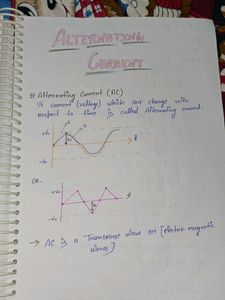 ALTERNATING
CURRENT
# Alternating Current (AC)
A current (voltage) which are change with
respect to time is called Alternating current.
+V₀
-V₀
OR-
+V₀
-V₀
→ AC is a Transverse wave or [electro-magnetic
waves]